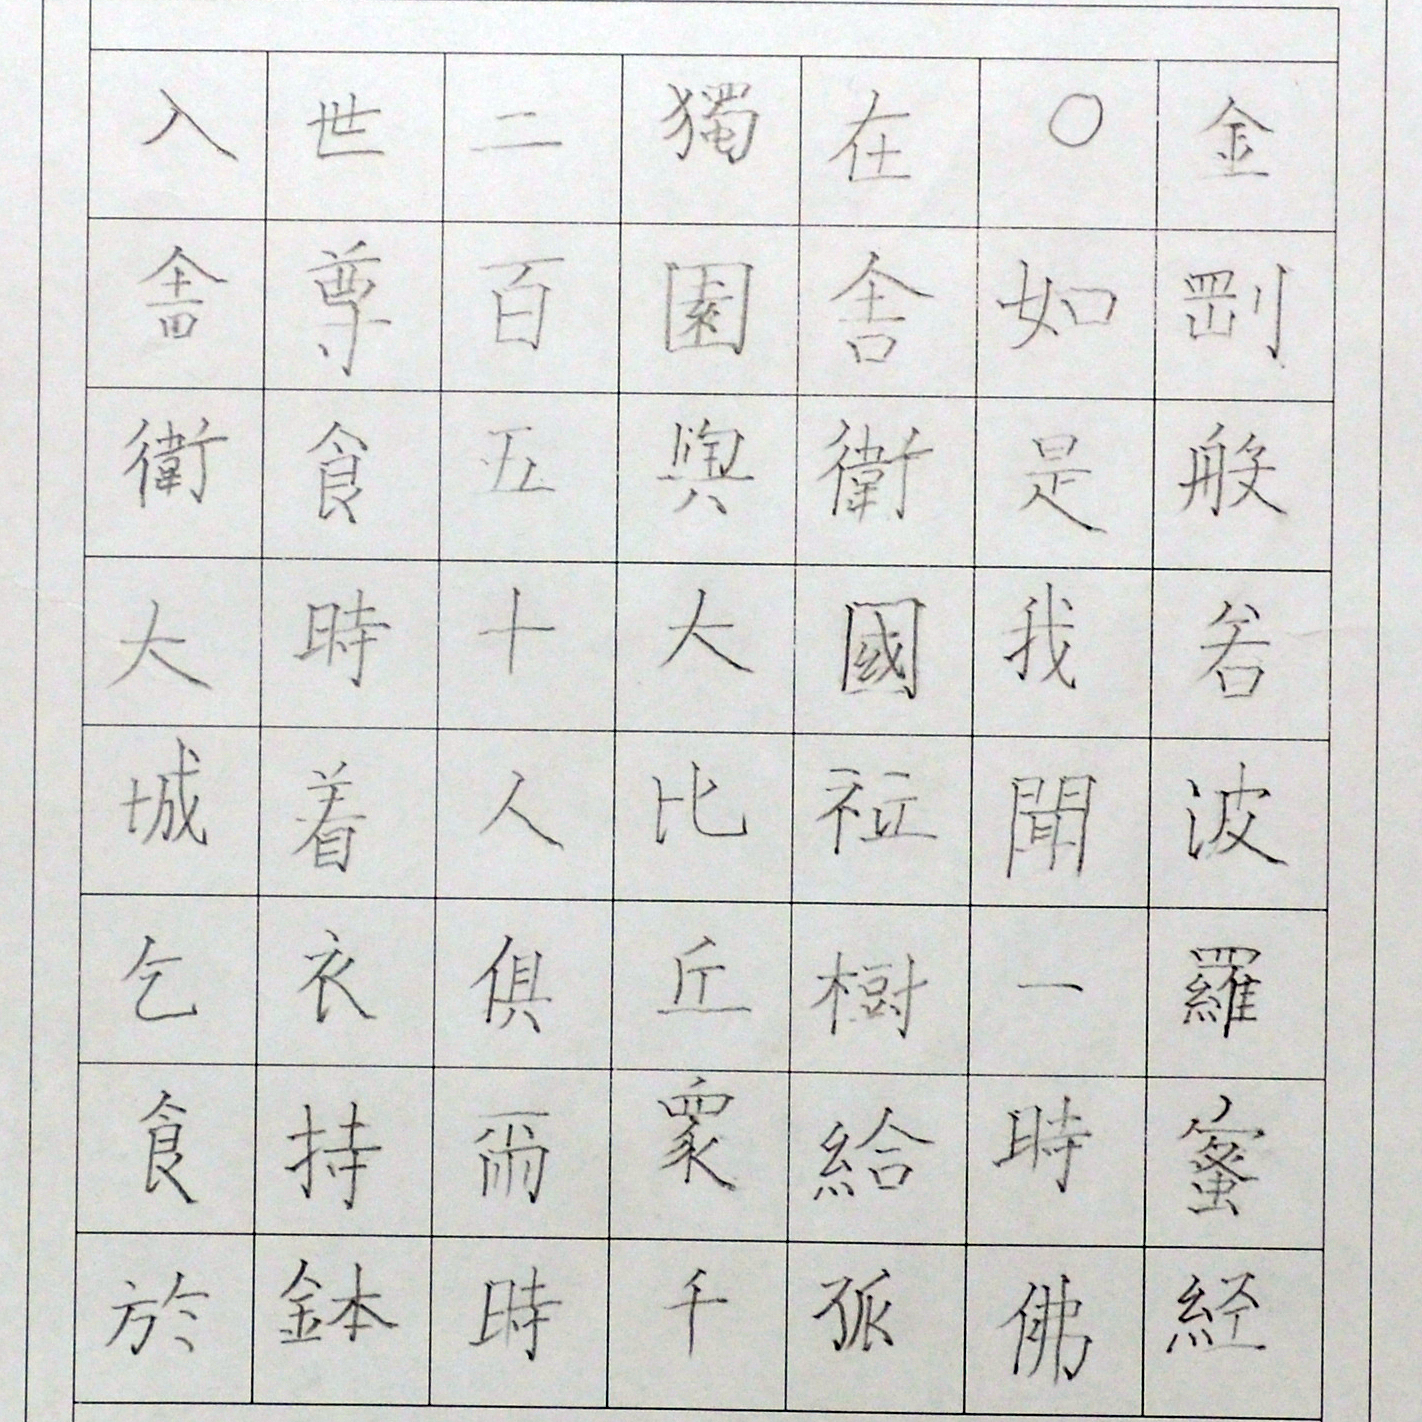 金剛般若波羅蜜経
〇如是我聞一時佛
在舎衛國祇樹給孤
獨園與大比丘衆千
二百五十人俱爾時
世尊食時着衣持鉢
入舎衛大城乞食於